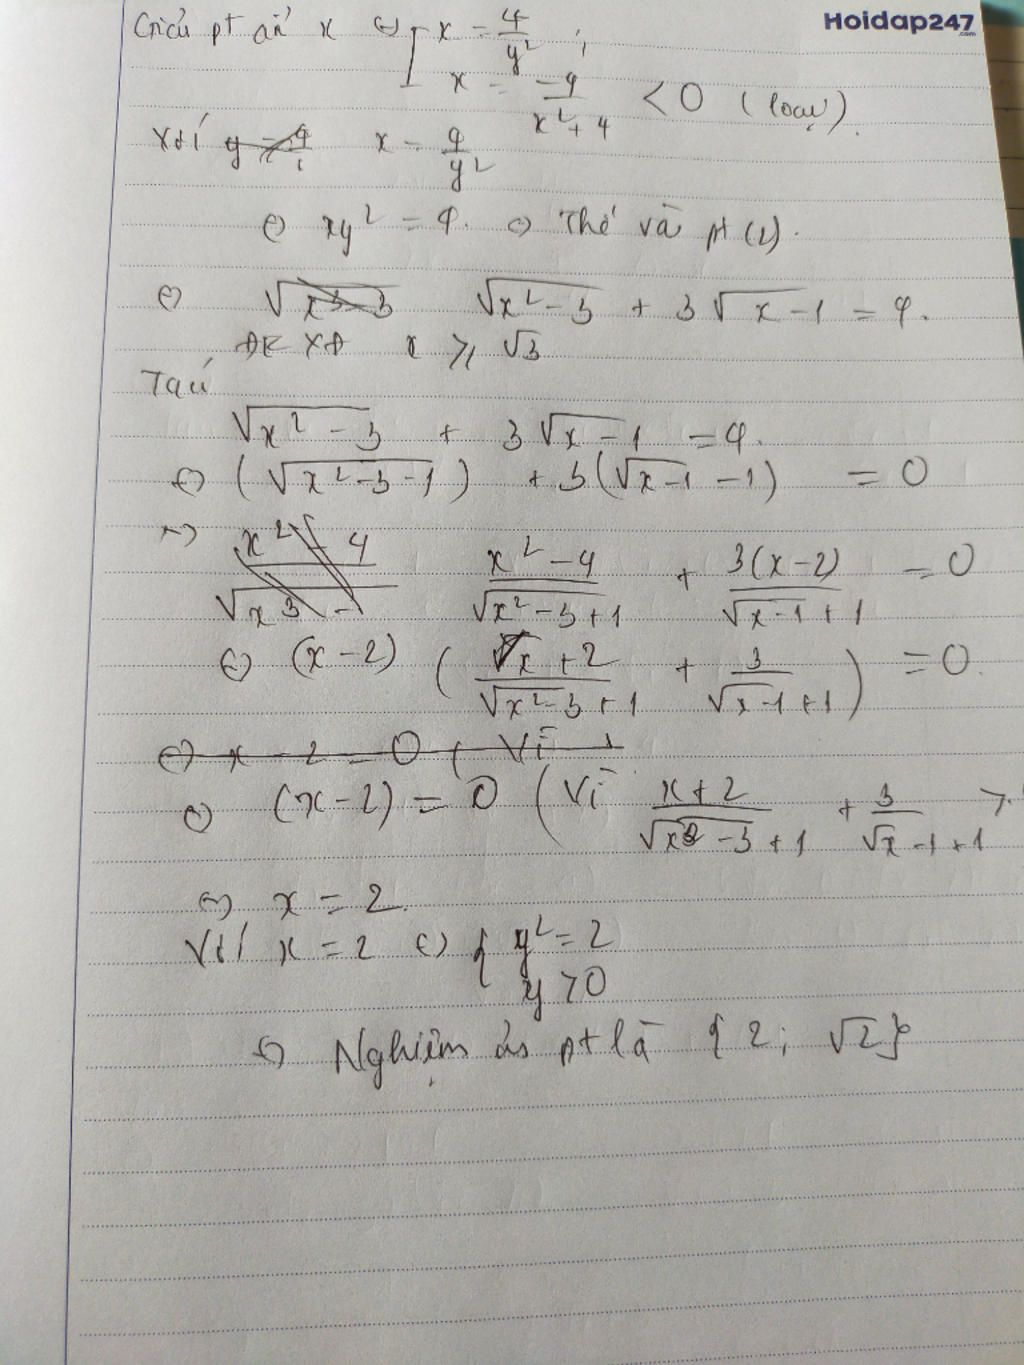 Hoidap247.com
Giải pt ẩn x ⇔ [ x = 4/y² ;
x = -4/(x²+4) < 0 (loại).
Với x = 4/y²
⇔ xy² = 4. ⇔ Thế và pt (2).
⇔ √(x²-3) + 3√(x-1) = 4.
ĐKXĐ x ⩾ √3
Ta có
√(x²-3) + 3√(x-1) = 4.
⇔ (√(x²-3-1)) + 3(√(x-1) - 1) = 0
⇔ (x²-4)/(√(x²-3)+1) + 3(x-2)/(√(x-1)+1) = 0
⇔ (x-2) ( (x+2)/(√(x²-3)+1) + 3/(√(x-1)+1) ) = 0.
⇔ (x-2) = 0 (Vì (x+2)/(√(x²-3)+1) + 3/(√x-1+1) >
⇔ x = 2.
Với x = 2 ⇔ { y² = 2
y > 0
⇔ Nghiệm pt là {2; √2}